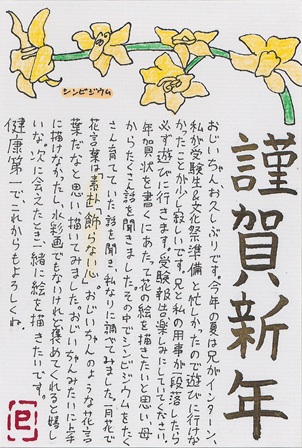 シンビジウム
謹賀新年
おじいちゃん、お久しぶりです。今年の夏は兄がインターン、
私が受験生&文化祭準備と忙しかったので遊びに行けな
かったことが少し寂しいです。兄と私の用事が一段落したら
必ず遊びに行きます!受験報告楽しみにしていてください。
年賀状を書くにあたって花の絵を描きたいと思い、母
からたくさん話を聞きました。その中でシンビジウムをたく
さん育てていた話を聞き、私なりに調べてみました。一月花で
花言葉は「素朴」「飾らない心」。おじいちゃんのような花言
葉だなと思い、描いてみました。おじいちゃんみたいに上手
に描けなかったし、水彩画でもないけれど褒めてくれると嬉し
いな。次に会えたとき一緒に絵を描きたいです。
健康第一で、これからもよろしくね。
巳